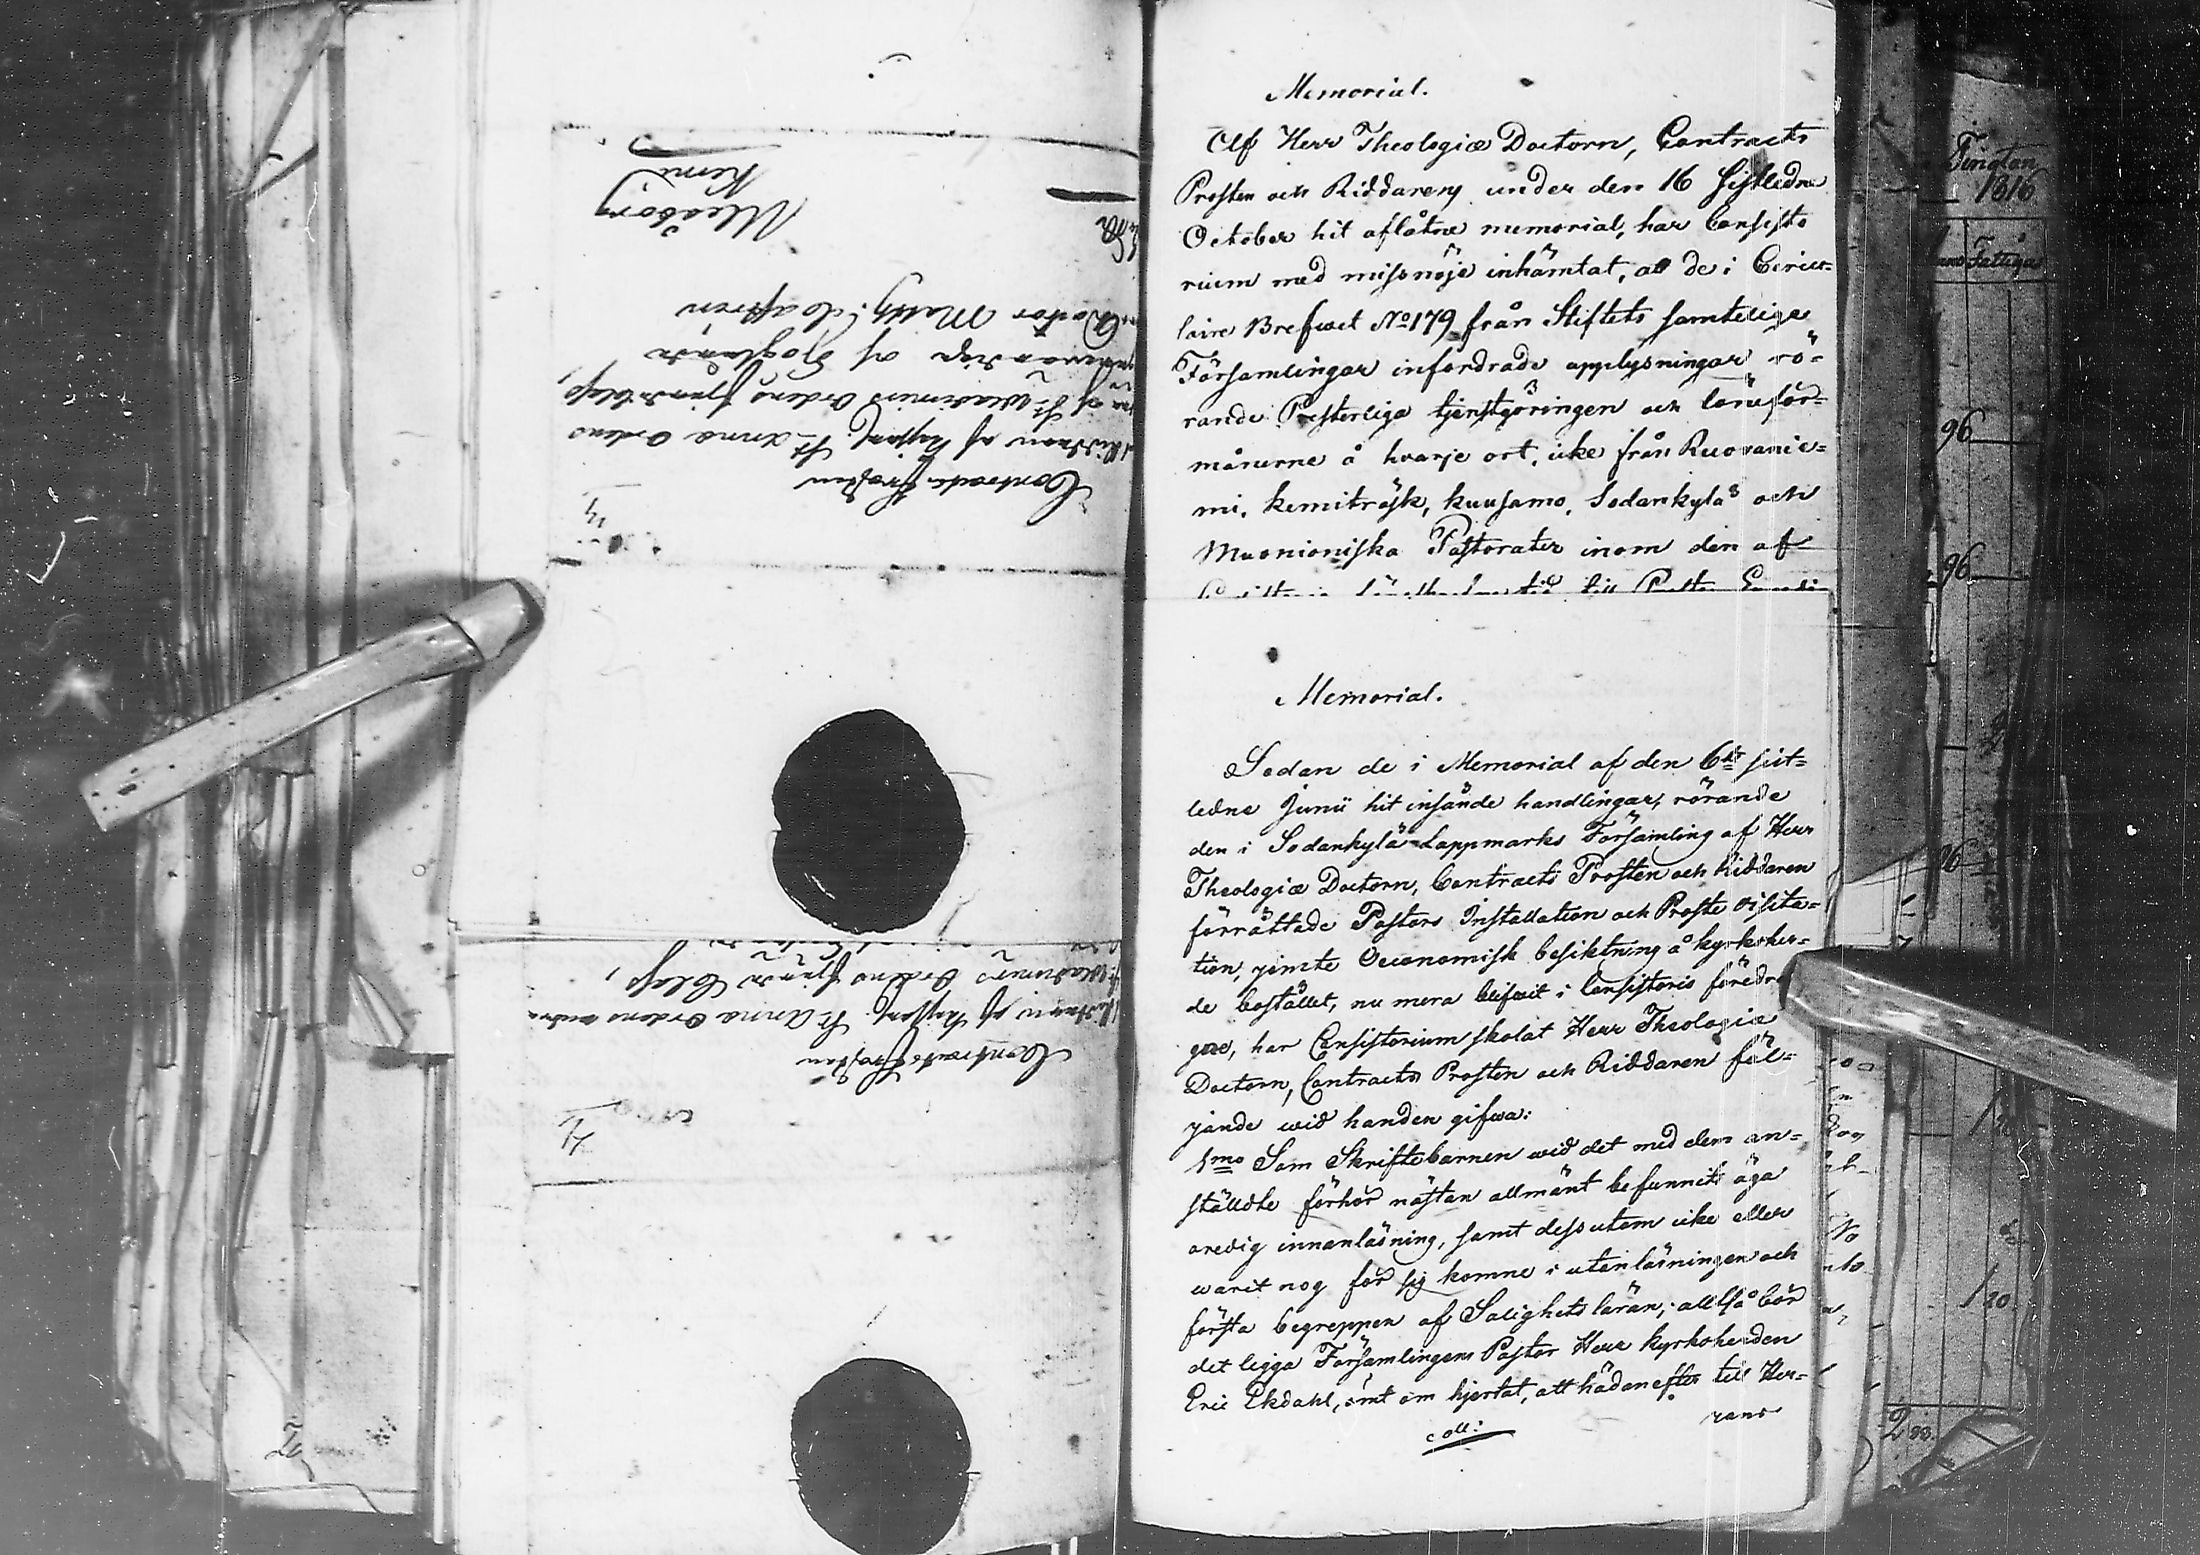 Memorial.
Af Herr Theologiæ Doctorn, Contracts
Prosten och Riddaren, under den 16 sistledne
October hit aflåtne memorial, har Consisto
rium med missnöje inhämtat, att de i Circu-
laire Brefwet No 179 från Stiftets samtelige
Församlingar infordrade upplysningar rö-
rande Presterliga tjenstgöringen och löneför-
månerne å hvarje ort, icke från Ruovanie-
mi, Kemiträsk, Kuusamo, Sodankylä och
Muonioniska Pastorater inom den af
Memorial.
Sedan de i Memorial af den 6te sist-
ledne Junii hit insände handlingar, rörande
den i Sodankylä Lappmarks Församling af Herr
Theologiæ Doctorn, Contracts Prosten och Riddaren
förrättade Pastors Installation och Proste visita-
tion, jemte Oeconomisk besiktning å kyrkoher-
de bostället, nu mera blifwit i Consistorio föredra
gne, har Consistorium skolat Herr Theologiæ
Doctorn, Contracts Prosten och Riddaren föl-
jande wid handen gifwa:
1mo Som Skriftebarnen wid det med dem an-
ställdte förhör nästan allmänt befunnits äga
oredig innanläsning, samt dessutom icke eller
warit nog för sig komne i utanläsningen och
första begreppen af Salighets läran; alltså bör
det ligga Församlingens Pastor Herr Kyrkoherden
Eric Ekdahl, ömt om hjertat, att hädanefter till Her-
rans
coll:
Uleåborg
Kemi
Contracts Prosten
Riddaren af Kejserl. St Anna Ordens
af St Wladimirs Ordens fjerde Class,
Doctor Matth:
Contracts Prosten
Riddaren af Kejserl. St Anna Ordens andra
St Wladimirs Ordens fjerde Class,
1816
Fattiga
96
96
96